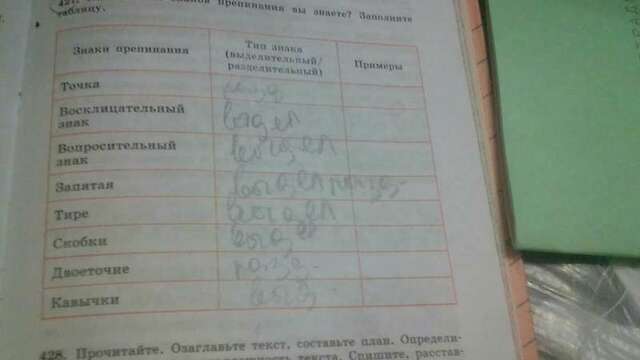 знаки препинания вы знаете? Заполните
таблицу.
Знаки препинания
Тип знака
(выделительный/
разделительный)
Примеры
Точка
Восклицательный
знак
выдел
Вопросительный
знак
выдел
Запятая
выдел
Тире
выдел
Скобки
выдел
Двоеточие
разд.
Кавычки
выд.
428. Прочитайте. Озаглавьте текст, составьте план. Определи-
текста. Спишите, расстав-